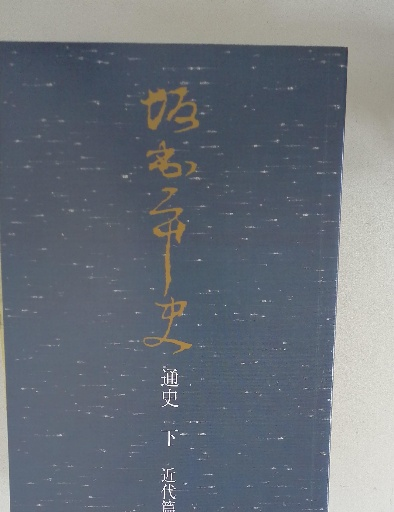 坂出市史
通史 下 近代篇